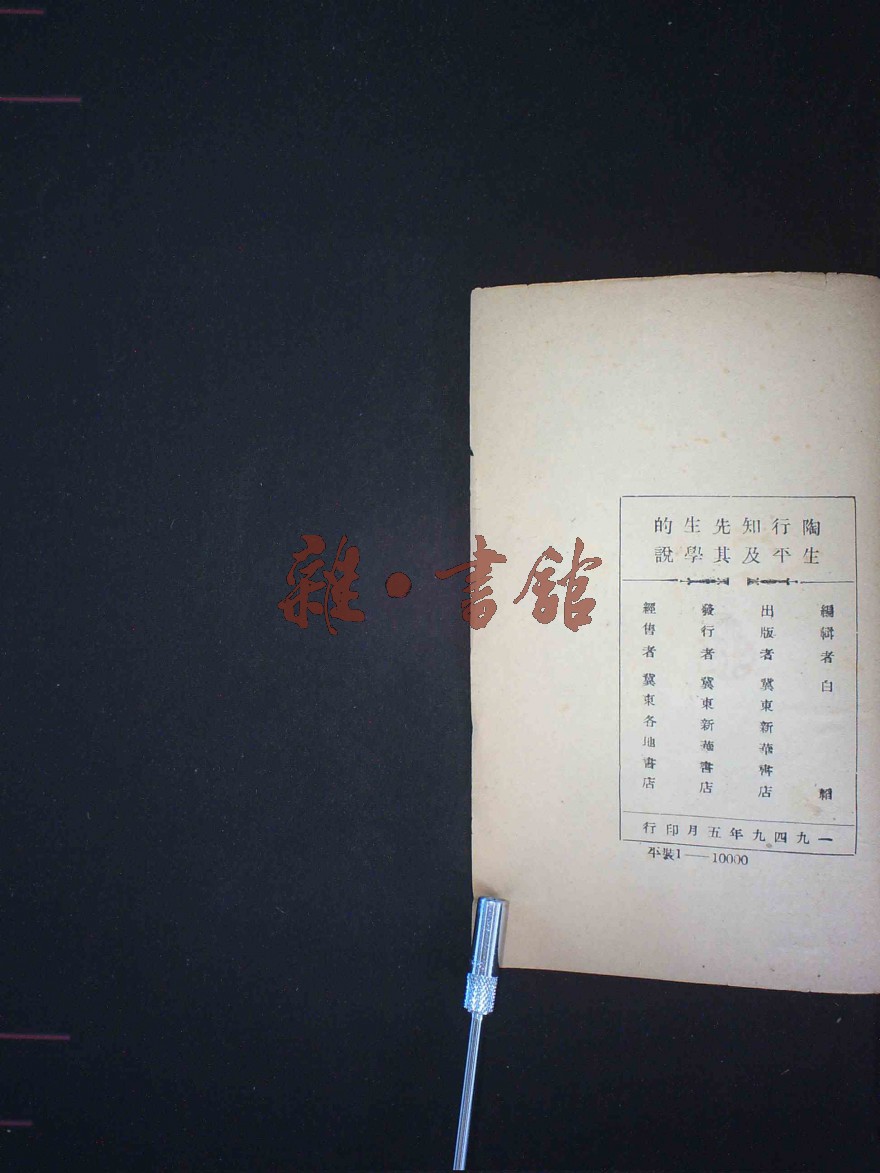 陶行知先生的
生平及其學說
編輯者 白 韜
出版者 冀東新華書店
發行者 冀東新華書店
經售者 冀東各地書店
一九四九年五月印行
平裝1——10000
雜·書館